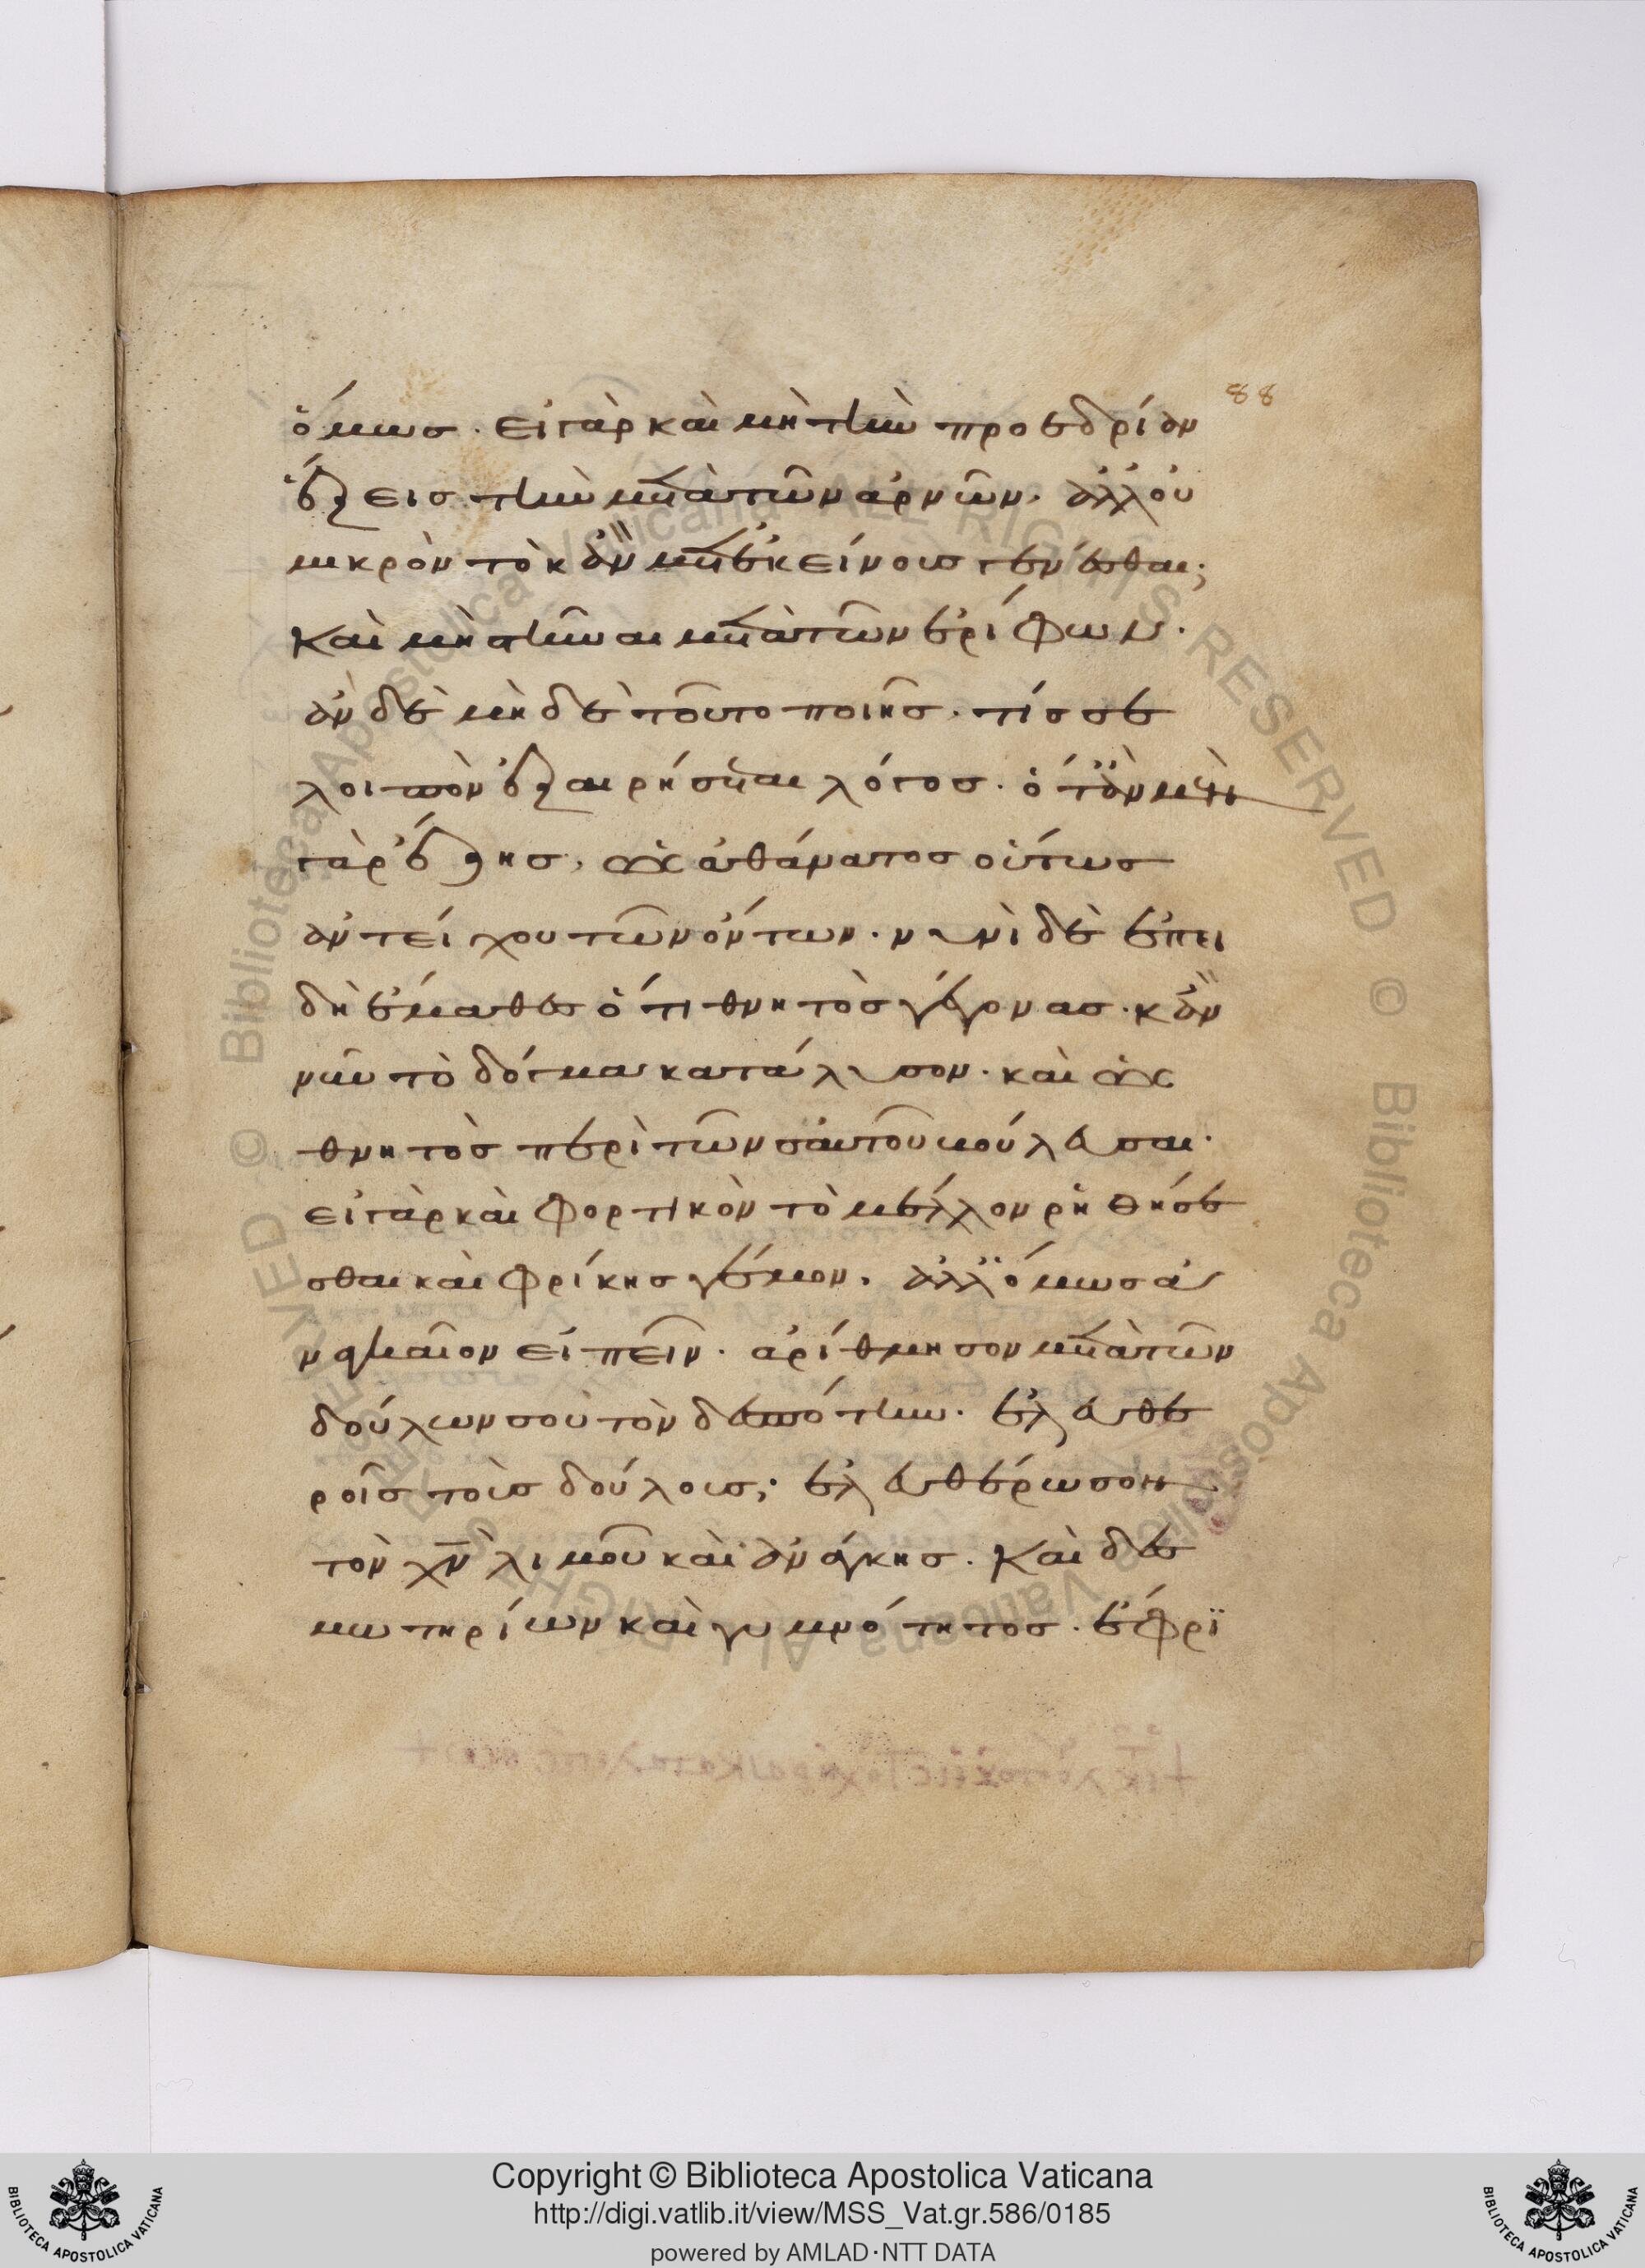 88
ὅμως. εἰ γὰρ καὶ μὴ τὴν προεδρίαν
ἕξεις τὴν μετὰ τῶν ἀρνῶν. ἀλλ' οὐ
μικρὸν τὸ κἂν μετ' ἐκείνους γενέσθαι;
καὶ μὴ στῆναι μετὰ τῶν ἐρίφων.
ἂν δὲ μηδὲ τοῦτο ποιῇς, τίς σε
λοιπὸν ἐξαιρήσεται λόγος. ὅταν μήτε
γὰρ ἔζης, ὡς ἀθάνατος οὕτως
ἀντείχου τῶν ὄντων. νυνὶ δὲ ἐπει
δὴ ἔμαθες ὅτι θνητὸς γέγονας. κἂν
νῦν τὸ δόγμα κατάλυσον. καὶ ὡς
θνητὸς περὶ τῶν σαυτοῦ βούλευσαι.
εἰ γὰρ καὶ φορτικὸν τὸ μέλλον ῥηθήσε
σθαι καὶ φρίκης γέμον. ἀλλ' ὅμως ἀ
ναγκαῖον εἰπεῖν. ἀρίθμησον μετὰ τῶν
δούλων σου τὸν δεσπότην. ἐλευθε
ροῖς τοὺς δούλους; ἐλευθέρωσον
τὸν χν λιμοῦ καὶ ἀνάγκης. καὶ δες
μωτηρίων καὶ γυμνότητος. ἔφρι
Copyright © Biblioteca Apostolica Vaticana
http://digi.vatlib.it/view/MSS_Vat.gr.586/0185
powered by AMLAD·NTT DATA
BIBLIOTECA APOSTOLICA VATICANA
BIBLIOTECA APOSTOLICA VATICANA